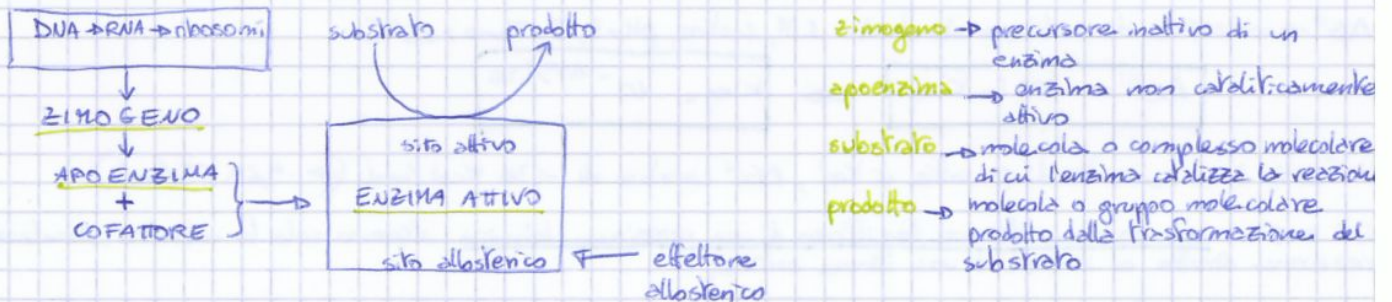 DNA → RNA → ribosomi
ZIMOGENO
APOENZIMA
+
COFATTORE
substrato prodotto
sito attivo
ENZIMA ATTIVO
sito allosterico
effettore
allosterico
zimogeno → precursore inattivo di un
enzima
apoenzima → enzima non cataliticamente
attivo
substrato → molecola o complesso molecolare
di cui l'enzima catalizza la reazione
prodotto → molecola o gruppo molecolare
prodotto dalla trasformazione del
substrato